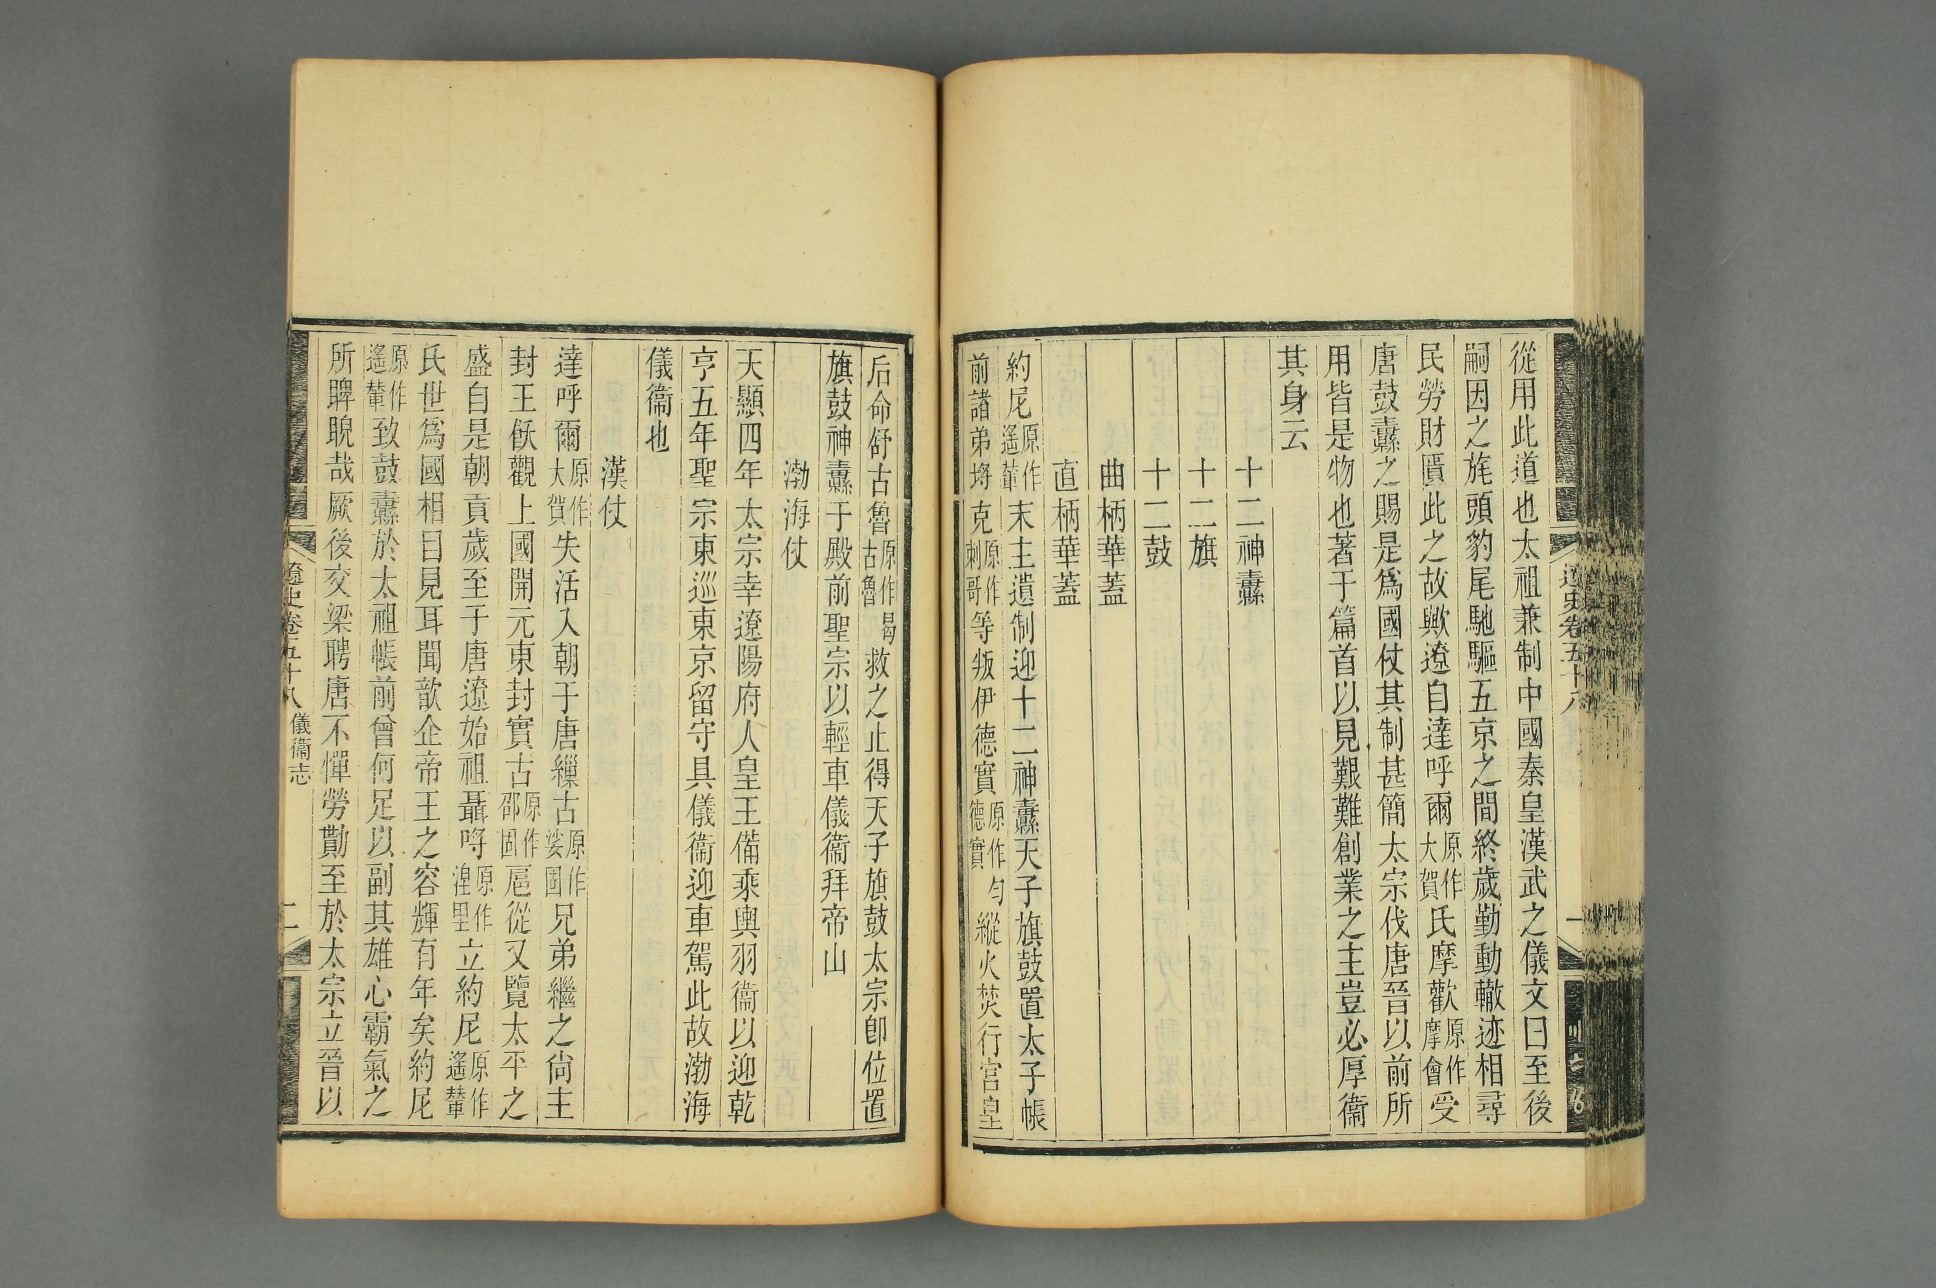 從用此道也太祖兼制中國秦皇漢武之儀文日至後
嗣因之旄頭豹尾馳驅五京之間終歲勤動轍迹相尋
民勞財匱此之故歟遼自達呼爾原作大賀氏摩歡原作摩會受
唐鼓纛之賜是爲國仗其制甚簡太宗伐唐晉以前所
用皆是物也著于篇首以見艱難創業之主豈必厚衞
其身云
十二神纛
十二旗
十二鼓
曲柄華蓋
直柄華蓋
約尼原作遙輦末主遺制迎十二神纛天子旗鼓置太子帳
前諸弟埒克原作剌哥等叛伊德實原作勻德實縱火焚行宮皇
后命舒古魯原作曷古魯救之止得天子旗鼓太宗卽位置
旗鼓神纛于殿前聖宗以輕車儀衞拜帝山
渤海仗
天顯四年太宗幸遼陽府人皇王備乘輿羽衞以迎乾
亨五年聖宗東巡東京留守具儀衞迎車駕此故渤海
儀衞也
漢仗
達呼爾原作大賀失活入朝于唐繅古原作娑固兄弟繼之尙主
封王飫觀上國開元東封實古原作邵固扈從又覽太平之
盛自是朝貢歲至于唐遼始祖聶哷原作湼里立約尼原作遙輦
氏世爲國相目見耳聞歆企帝王之容輝有年矣約尼
原作遙輦致鼓纛於太祖帳前曾何足以副其雄心霸氣之
所睥睨哉厥後交梁聘唐不憚勞勩至於太宗立晉以
遼史卷五十八 儀衞志
二
遼史卷五十八
一